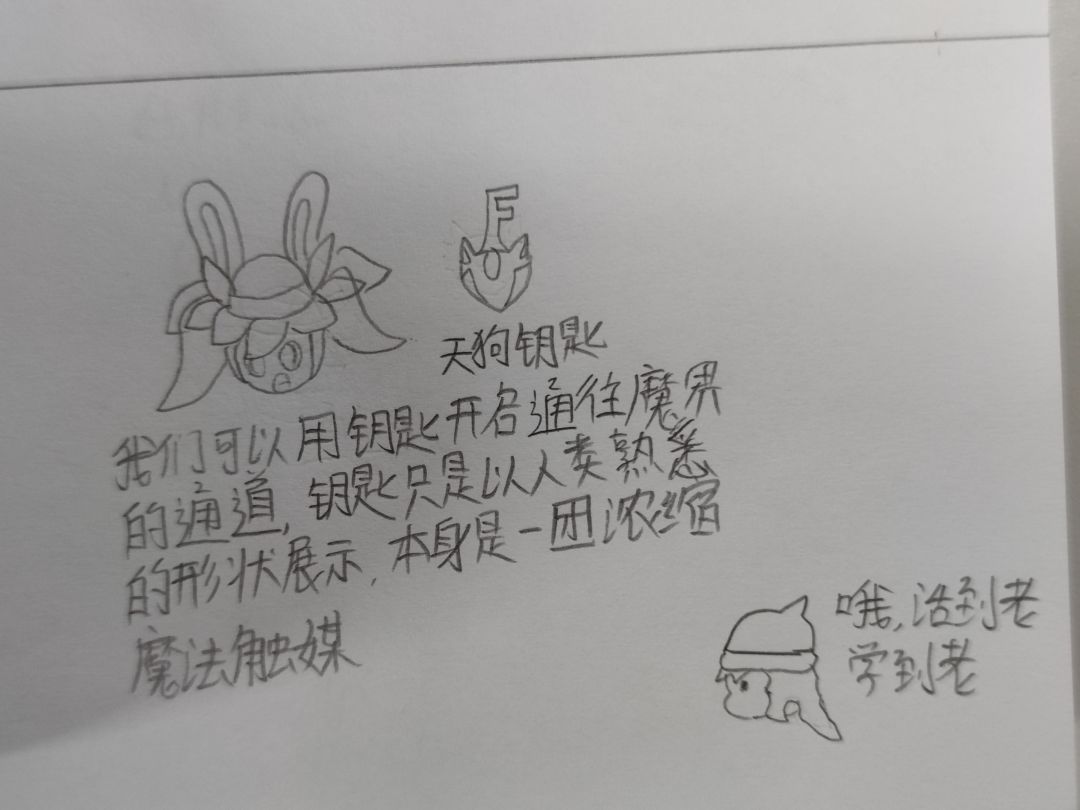 天狗钥匙
我们可以用钥匙开启通往魔界
的通道,钥匙只是以人类熟悉
的形状展示,本身是一团浓缩
魔法触媒
哦,活到老
学到老